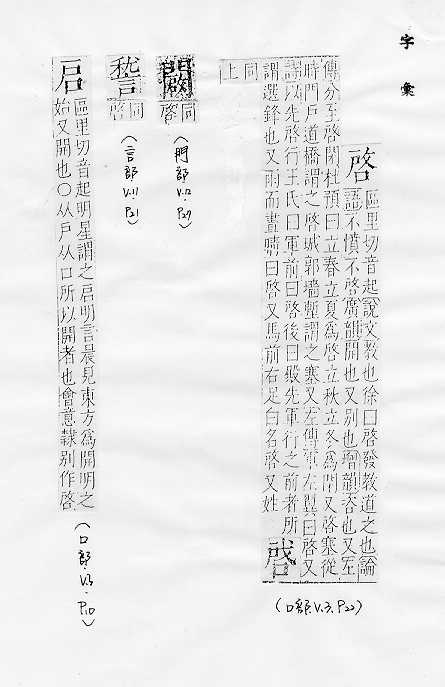 字彙
啓
區里切音起說文教也徐曰啓發教道之也論
語不憤不啓廣韻開也又別也增韻咨也又左
傳分至啓閉杜預曰立春立夏爲啓立秋立冬爲閉又啓塞從
時門戶道橋謂之啓城郭墻塹謂之塞又左傳軍左翼曰啓又
詩以先啓行王氏曰軍前曰啓後曰殿先軍行之前者所
謂選鋒也又雨而晝晴曰啓又馬前右足白名啓又姓
啟
同
上
(口部.V.3.P22)
同
啓
(門部V.12.P27)
同
啓
(言部V.11.P21)
启
區里切音起明星謂之启明言晨見東方爲開明之
始又開也○从戶从口所以開者也會意隷别作啓
(口部.V.3.P10)